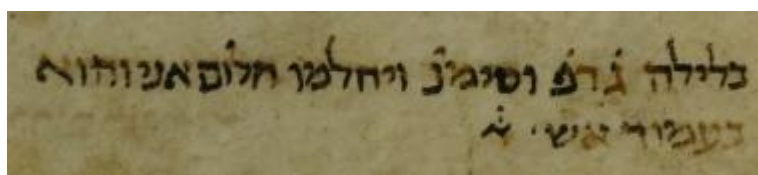 בלילה ג̇ ר̇פ̇ וסימ̇נ̇ ויחלמו חלום אני והוא
בעמוד אש · א̇